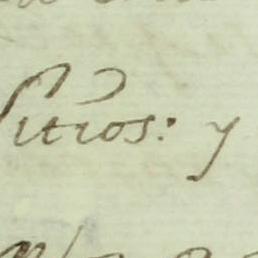 sitios: y